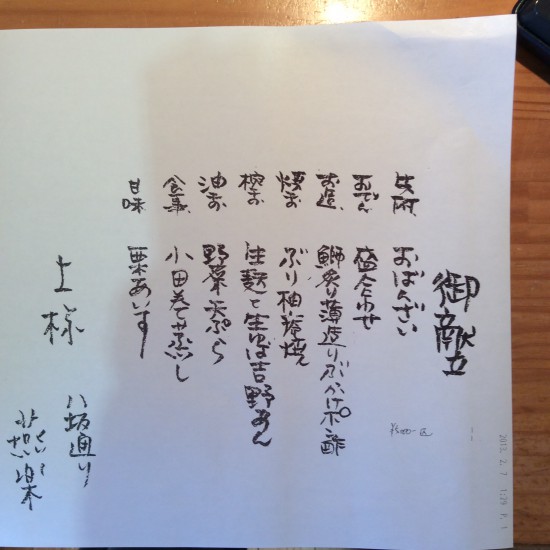 御献立
先附 おばんざい
おでん 盛合せ
お造 鰤炙り薄造りぶっかけポン酢
焼物 ぶり柚庵焼
椀物 生麩と生ゆば吉野あん
油物 野菜天ぷら
食事 小田巻き蒸し
甘味 栗あいす
上様
八坂通り
燕楽